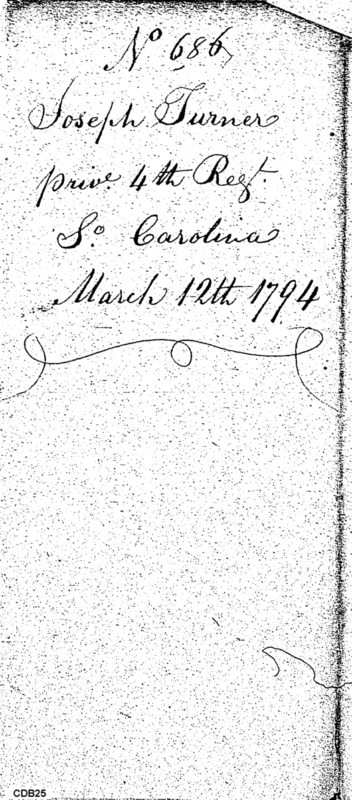 No 686
Joseph Turner
prive 4th Regt.
So. Carolina
March 12th 1794
CDB25